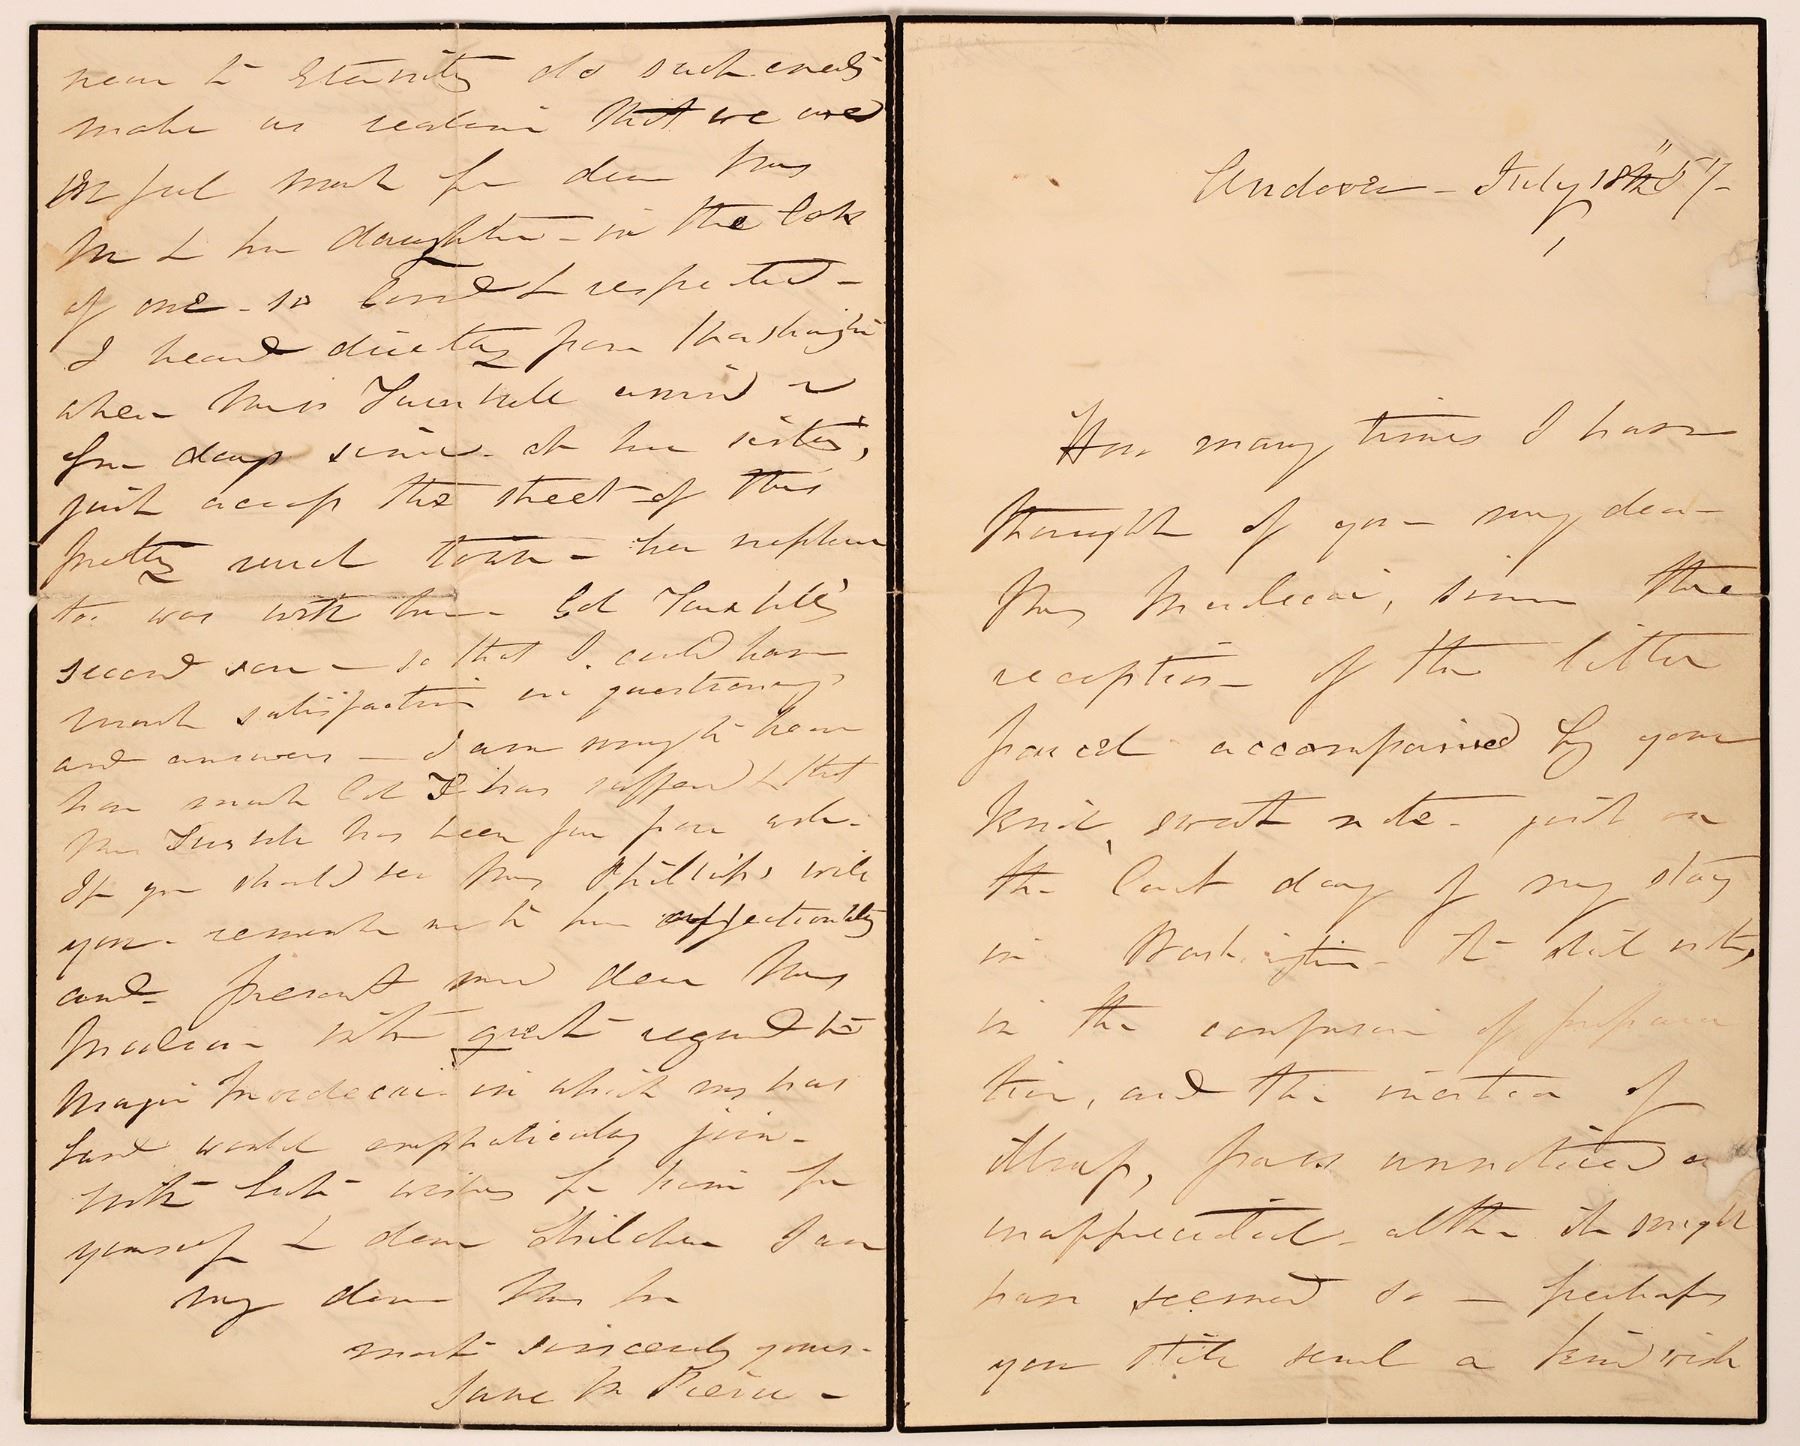 Andover - July 18th 57 -
How many times I have
thought of you - my dear
Mrs Mordecai, since the
reception of the little
parcel accompanied by your
kind, sweet note - just on
the last day of my stay
in Washington - It did not,
in the confusion of prepara
tion, and the inertia of
illness, pass unnoticed or
unappreciated - altho it might
have seemed so - perhaps
you still send a kind wish
near to Eternity do such events
make us realize that we are
We feel much for dear Mrs
M & her daughter - in the loss
of one - so loved & respected -
I heard directly from Washington
when Miss arrived a
few days since - at her sister's,
just across the street of this
pretty rural town - her nephew
too was with her - Col
second son - so that I could have
much satisfaction in questionings
and answers - I am sorry to hear
how much Col T has suffered & that
Mrs has been far from well -
If you should see Mrs Phillips will
you - remember me to her affectionately
and - present me dear Mrs
Mordecai with great regard to
Major Mordecai - in which my hus
band would emphatically join -
With best wishes for him for
yourself & dear Children I am
my dear Mrs M
most sincerely yours -
Jane M Pierce -